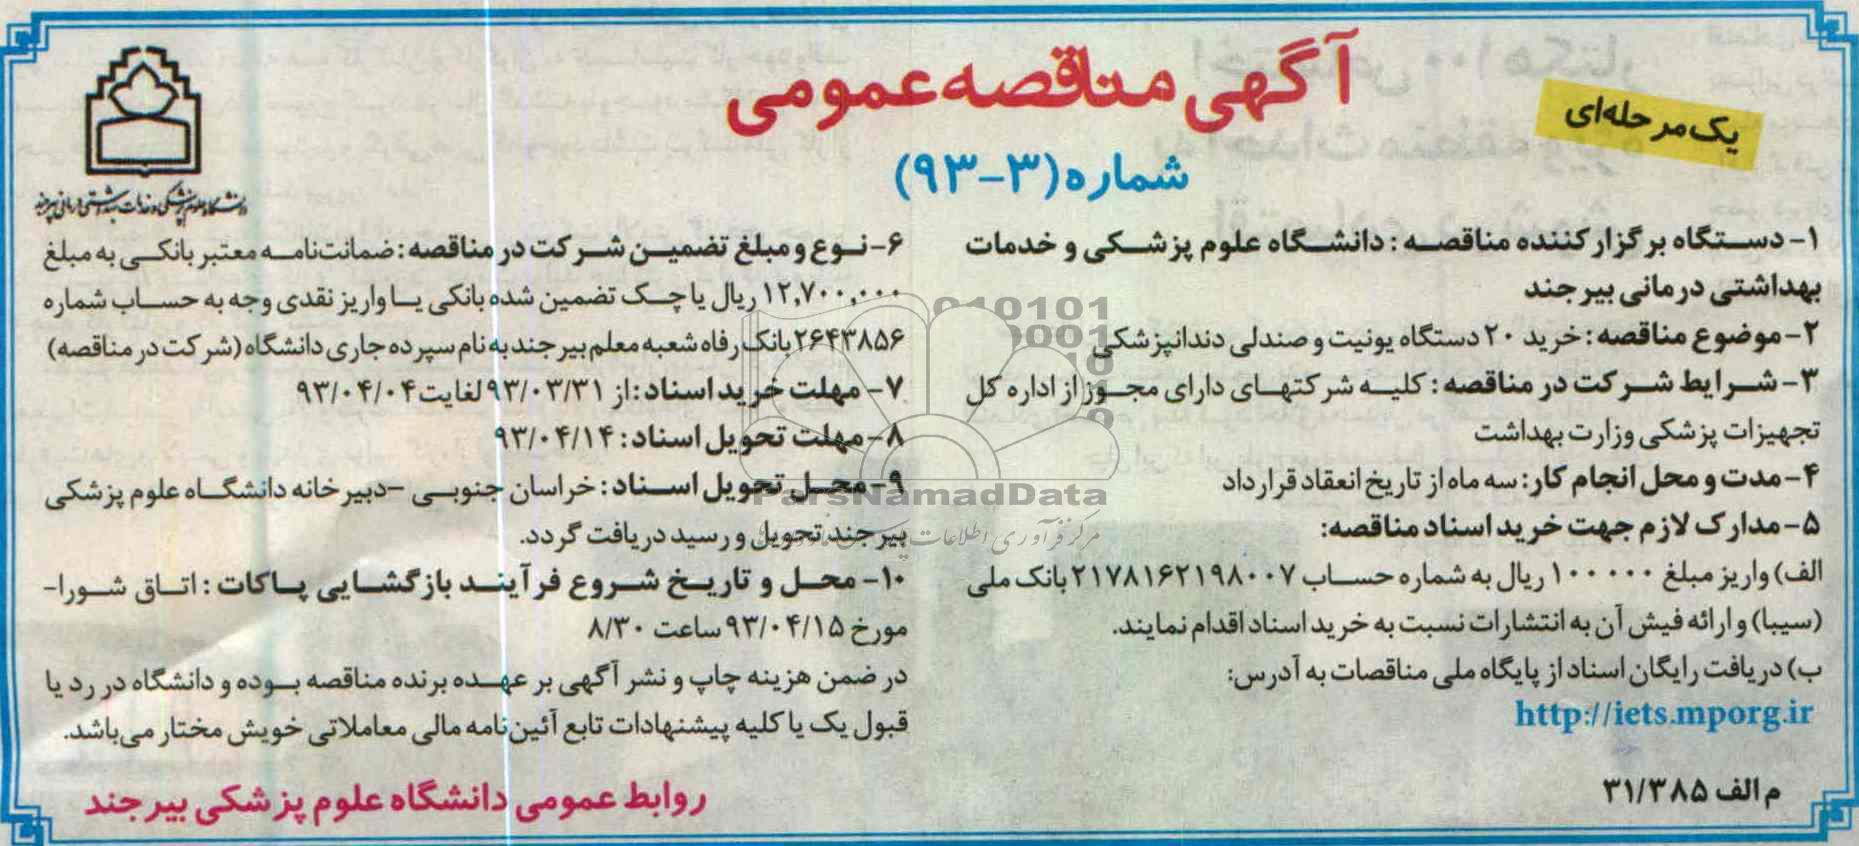 آگهی مناقصه عمومی
یک مرحله‌ای
شماره (۳-۹۳)
دانشگاه علوم پزشکی و خدمات بهداشتی درمانی بیرجند
۱- دستگاه برگزار کننده مناقصه : دانشگاه علوم پزشکی و خدمات
بهداشتی درمانی بیرجند
۲- موضوع مناقصه : خرید ۲۰ دستگاه یونیت و صندلی دندانپزشکی
۳- شرایط شرکت در مناقصه : کلیه شرکتهای دارای مجوز از اداره کل
تجهیزات پزشکی وزارت بهداشت
۴- مدت و محل انجام کار: سه ماه از تاریخ انعقاد قرارداد
۵- مدارک لازم جهت خرید اسناد مناقصه:
الف) واریز مبلغ ۱۰۰۰۰۰ ریال به شماره حساب ۲۱۷۸۱۶۲۱۹۸۰۰۷ بانک ملی
(سیبا) و ارائه فیش آن به انتشارات نسبت به خرید اسناد اقدام نمایند.
ب) دریافت رایگان اسناد از پایگاه ملی مناقصات به آدرس:
http://iets.mporg.ir
م الف ۳۱/۳۸۵
۶- نوع و مبلغ تضمین شرکت در مناقصه : ضمانت‌نامه معتبر بانکی به مبلغ
۱۲,۷۰۰,۰۰۰ ریال یا چک تضمین شده بانکی یا واریز نقدی وجه به حساب شماره
۲۶۴۳۸۵۶ بانک رفاه شعبه معلم بیرجند به نام سپرده جاری دانشگاه (شرکت در مناقصه)
۷- مهلت خرید اسناد : از ۹۳/۰۳/۳۱ لغایت ۹۳/۰۴/۰۴
۸- مهلت تحویل اسناد : ۹۳/۰۴/۱۴
۹- محل تحویل اسناد : خراسان جنوبی -دبیرخانه دانشگاه علوم پزشکی
بیرجند تحویل و رسید دریافت گردد.
۱۰- محل و تاریخ شروع فرآیند بازگشایی پاکات : اتاق شورا-
مورخ ۹۳/۰۴/۱۵ ساعت ۸/۳۰
در ضمن هزینه چاپ و نشر آگهی بر عهده برنده مناقصه بوده و دانشگاه در رد یا
قبول یک یا کلیه پیشنهادات تابع آئین‌نامه مالی معاملاتی خویش مختار می‌باشد.
روابط عمومی دانشگاه علوم پزشکی بیرجند
ParsNamadData